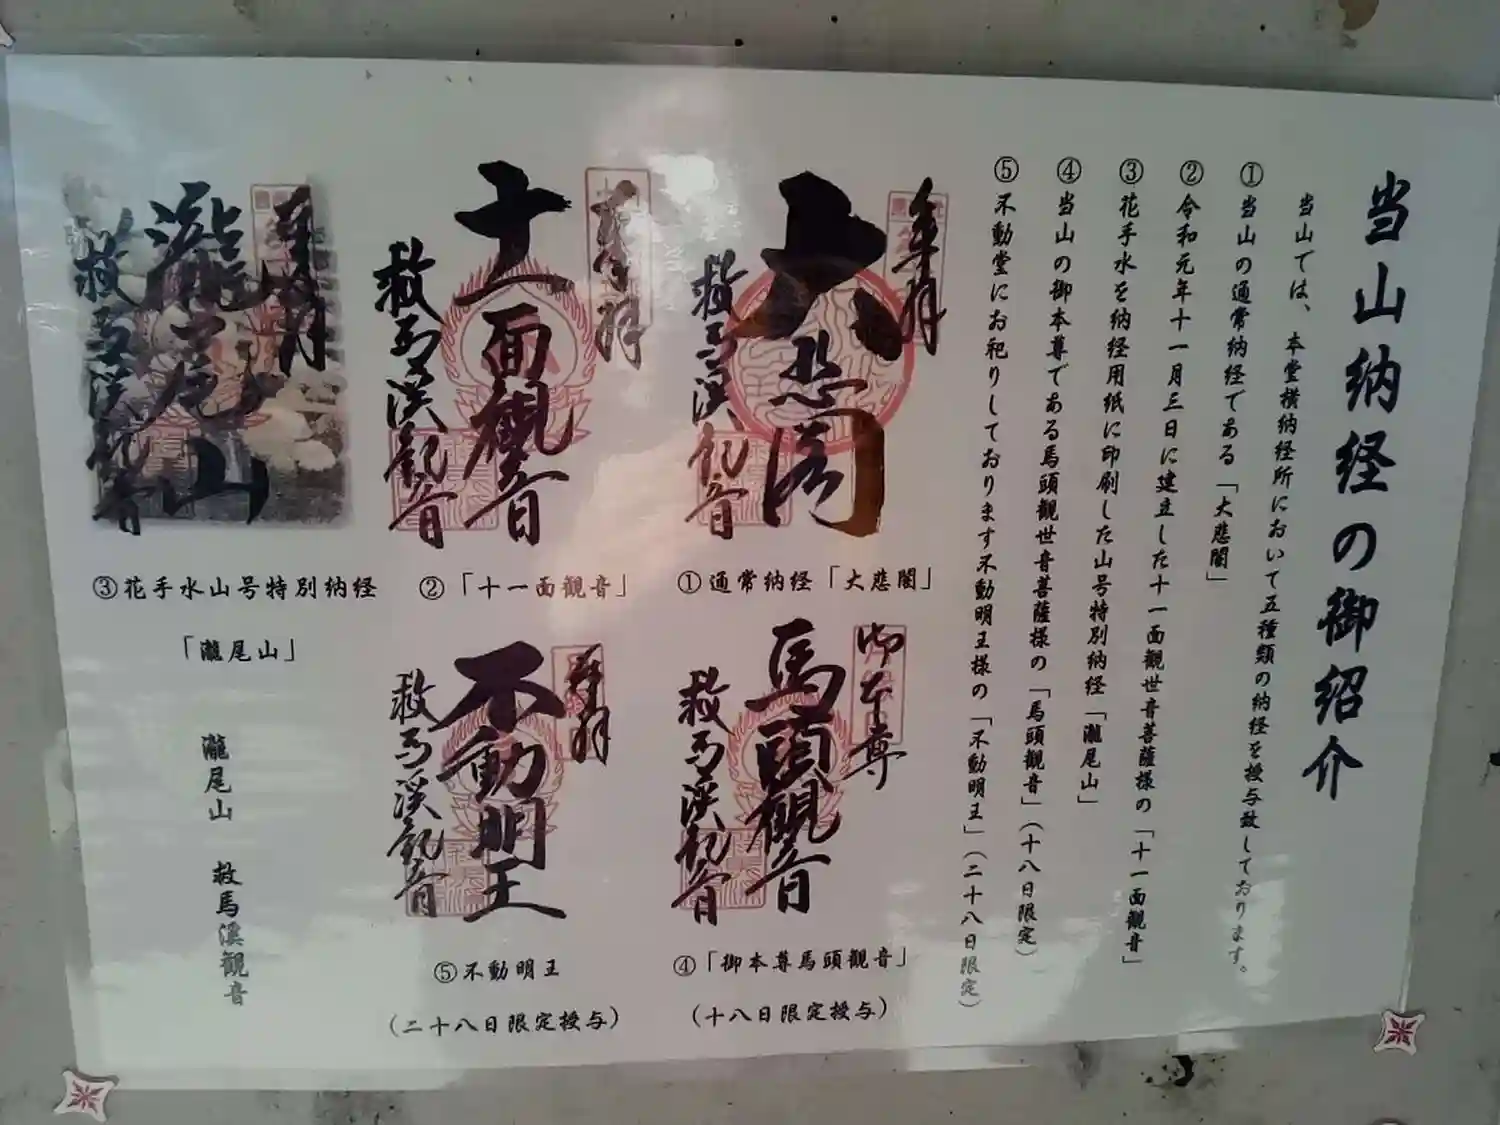 当山納経の御紹介
当山では、本堂横納経所において五種類の納経を授与致しております。
①当山の通常納経である「大悲閣」
②令和元年十一月三日に建立した十一面観世音菩薩様の「十一面観音」
③花手水を納経用紙に印刷した山号特別納経「瀧尾山」
④当山の御本尊である馬頭観世音菩薩様の「馬頭観音」(十八日限定)
⑤不動堂にお祀りしております不動明王様の「不動明王」(二十八日限定)
大悲閣
救馬渓観音
①通常納経「大悲閣」
十一面観音
救馬渓観音
②「十一面観音」
瀧尾山
救馬渓観音
③花手水山号特別納経
「瀧尾山」
御本尊
馬頭観音
救馬渓観音
④「御本尊馬頭観音」
(十八日限定授与)
不動明王
救馬渓観音
⑤不動明王
(二十八日限定授与)
瀧尾山 救馬溪観音